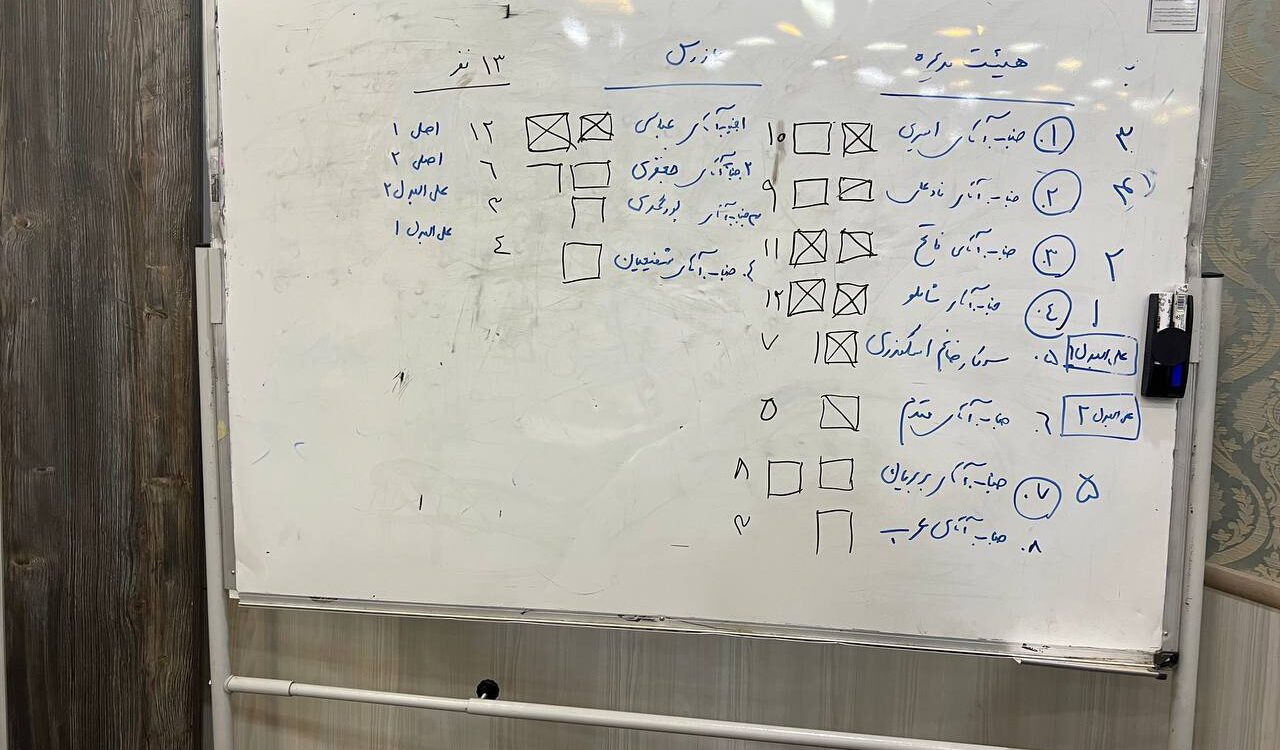 هیئت مدیره
۳ ۱. جناب آقای امیری ۱۰
۴ ۲. جناب آقای نادعلی ۹
۲ ۳. جناب آقای فاتح ۱۱
۱ ۴. جناب آقای شاملو ۱۲
علی البدل ۱ ۵. سرکار خانم اسکندری ۷
علی البدل ۲ ۶. جناب آقای مقدم ۵
۵ ۷. جناب آقای بربریان ۸
۸. جناب آقای عرب ۲
بازرس
۱۳ نفر
۱ جناب آقای عباسی ۱۲ اصل ۱
۲ جناب آقای جعفری ۶ اصل ۲
۳ جناب آقای پورمحمدی ۳ علی البدل ۲
۴. جناب آقای شفیعیان ۴ علی البدل ۱